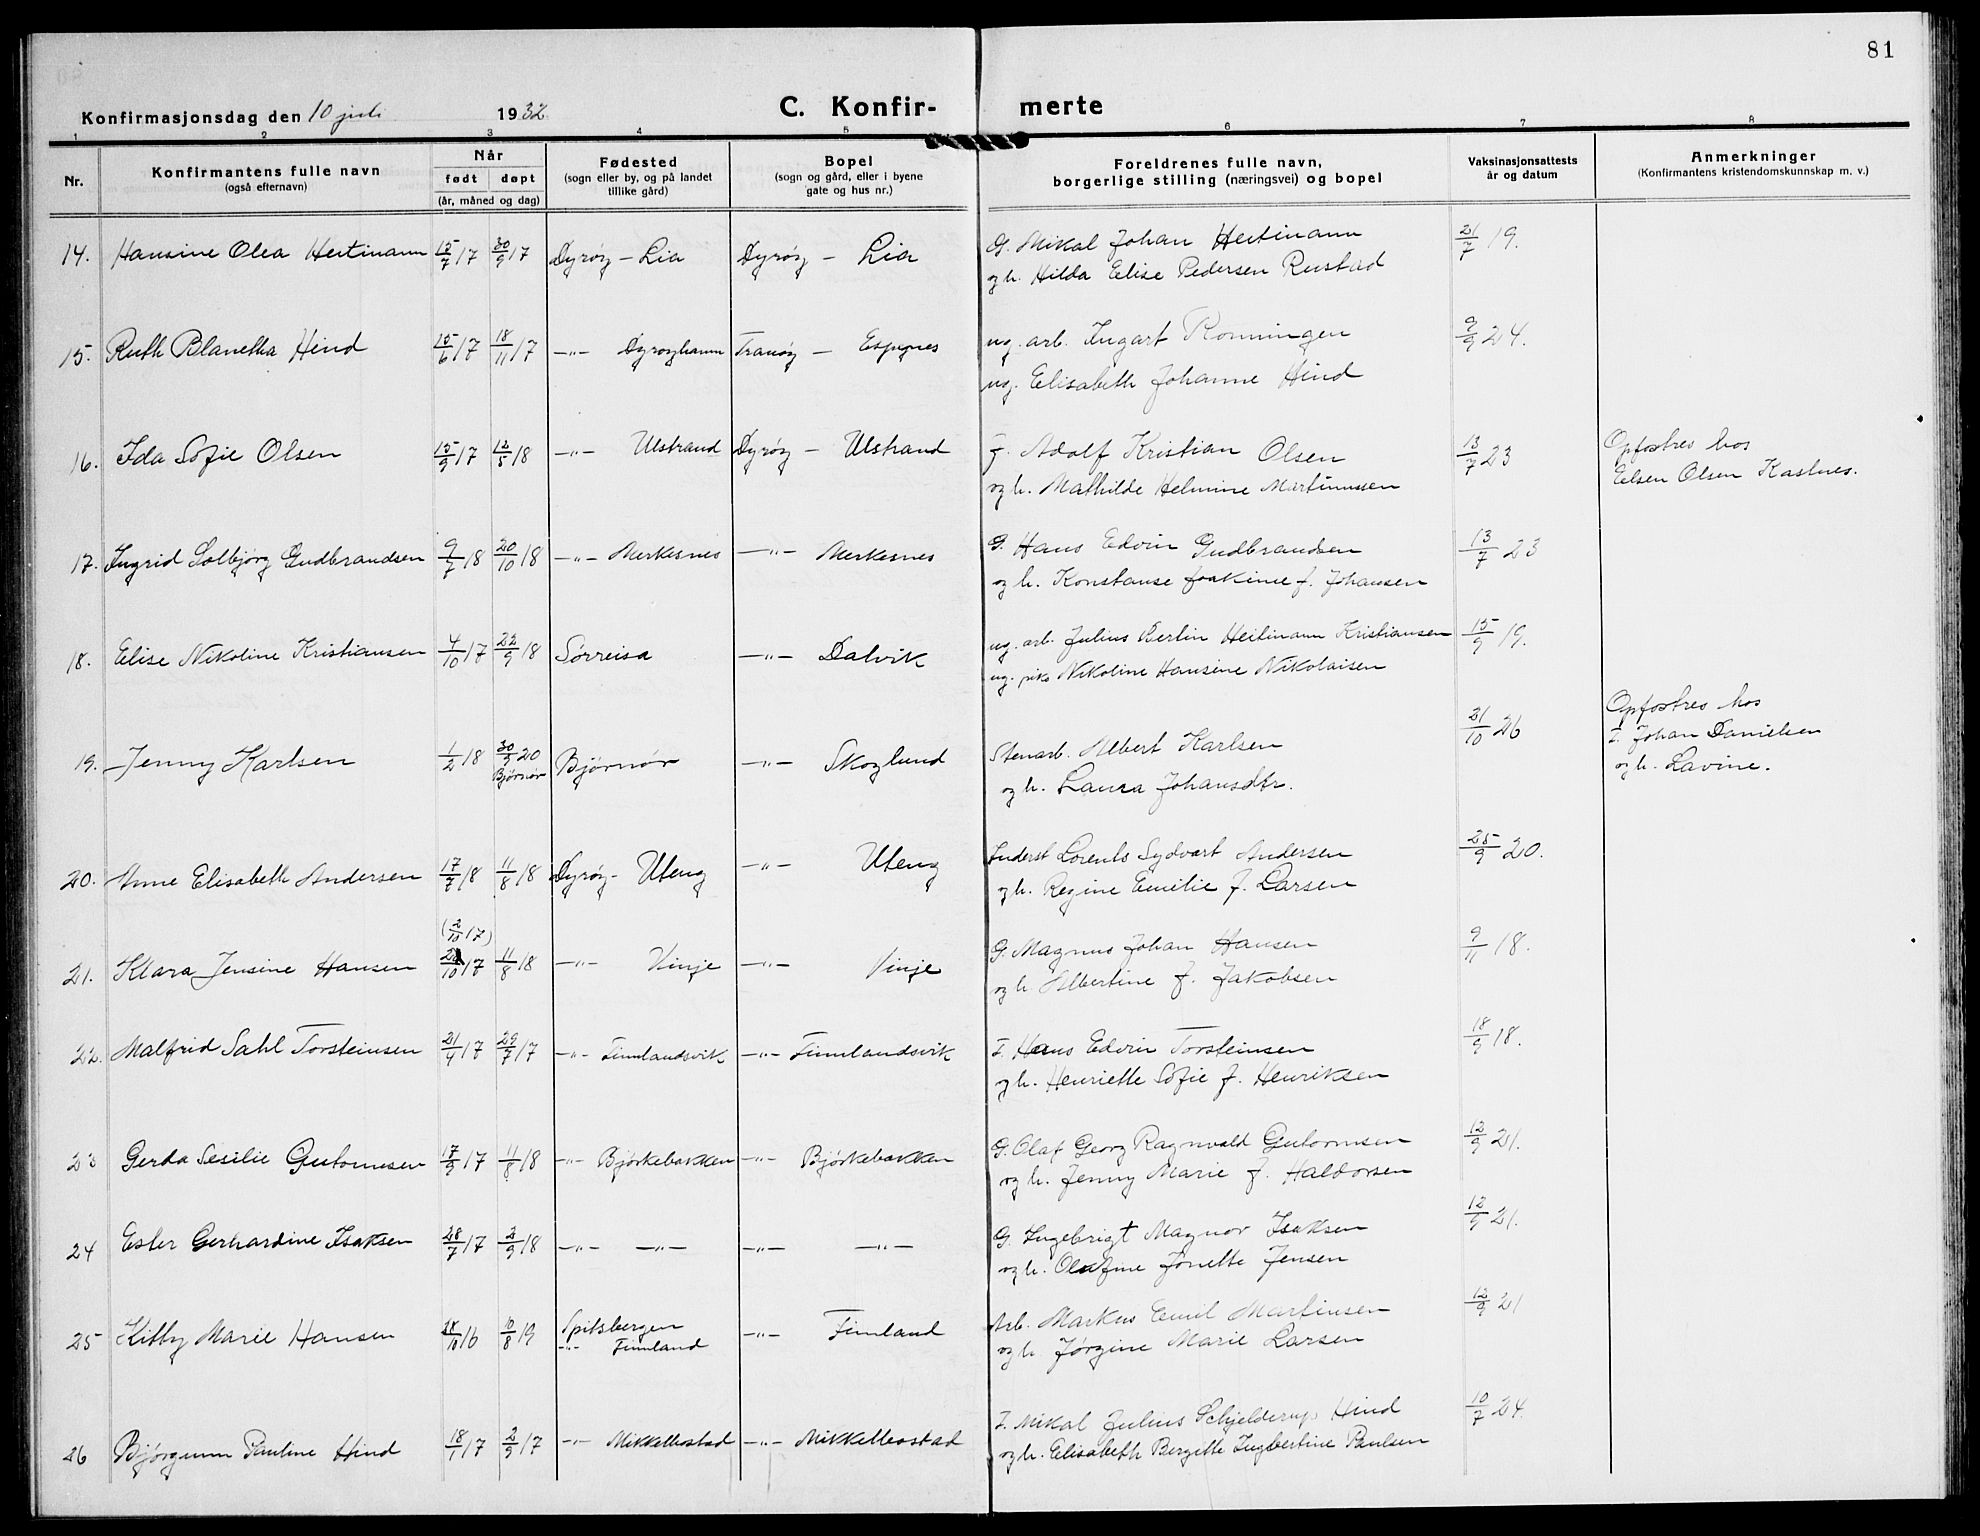 81
Konfirmasjonsdag den 10 juli 1932 C. Konfir- merte
1 2 3 4 5 6 7 8
Nr. Konfirmantens fulle navn (også efternavn) Når født døpt (år, måned og dag) Fødested (sogn eller by, og på landet tillike gård) Bopel (sogn og gård, eller i byene gate og hus nr.) Foreldrenes fulle navn, borgerlige stilling (næringsvei) og bopel Vaksinasjonsattests år og datum Anmerkninger (Konfirmantens kristendomskunnskap m. v.)
14. Hansine Olea Heitmann 15/7 17 30/9 17 Dyrøy – Lia Dyrøy – Lia G. Mikal Johan Heitmann 21/7 19.
og h. Hilda Elise Pedersen Rustad
15. Ruth Blanetha Hind 15/6 17 18/11 17 –"– Dyrøyhamn Tranøy – Espenes ug. arb. Ingart Ronningen 9/9 24.
ug. Elisabeth Johanne Hind
16. Ida Sofie Olsen 15/9 17 12/5 18 –"– Ulstrand Dyrøy – Ulstrand F. Adolf Kristian Olsen 13/7 23 Opfostres hos
og h. Mathilde Helmine Martinussen Elsen Olsen Kastnes.
17. Ingrid Solbjørg Gudbrandsen 9/7 18 20/10 18 –"– Merkesnes –"– Merkesnes G. Hans Edvin Gudbrandsen 13/7 23
og h. Konstanse Joakime f. Johansen
18. Elise Nikoline Kristiansen 4/10 17 22/9 18 Sørreisa –"– Dalvik ug. arb. Julius Bertin Heitmann Kristiansen 15/9 19.
ug. pike Nikoline Hansine Nikolaisen
19. Jenny Karlsen 1/2 18 30/9 20 Bjørnør Bjørnør –"– Skoglund Stenarb. Albert Karlsen 21/10 26 Opfostres hos
og h. Laura Johansdtr. F. Johan Danielsen
og h. Lavine.
20. Anne Elisabeth Andersen 17/7 18 11/8 18 Dyrøy – Uteng –"– Uteng Inderst Lorents Sydvart Andersen 25/9 20.
og h. Regine Emilie f. Larsen
(2/10 17)
21. Klara Jensine Hansen 10 17 11/8 18 –"– Vinje –"– Vinje G. Magnus Johan Hansen 9/11 18.
og h. Albertine f. Jakobsen
22. Malfrid Sahl Torsteinsen 21/4 17 29/7 17 –"– Finnlandsvik –"– Finnlandsvik F. Hans Edvin Torsteinsen 18/9 18.
og h. Henriette Sofie f. Henriksen
23 Gerda Sesilie Gutormsen 17/9 17 11/8 18 –"– Bjørkebakken –"– Bjørkebakken G. Olaf Georg Ragnvald Gutormsen 12/9 21.
og h. Jenny Marie f. Haldorsen
24 Ester Gerhardine Isaksen 28/7 17 2/9 18 –"– –"– –"– –"– G. Ingebrigt Magnor Isaksen 12/9 21.
og h. Olufine Jonette Jensen
25 Kitty Marie Hansen 10 16 10/8 19 Spitsbergen –"– Finnland –"– Finnland Arb. Markus Emil Martinsen 12/9 21
og h Jørgine Marie Larsen
26 Bjørgunn Pauline Hind 18/1 17 2/9 17 –"– Mikkelbostad –"– Mikkelbostad F. Mikal Julius Schjelderup Hind 10/7 24.
og h. Elisabeth Bergitte Ingbertine Paulsen